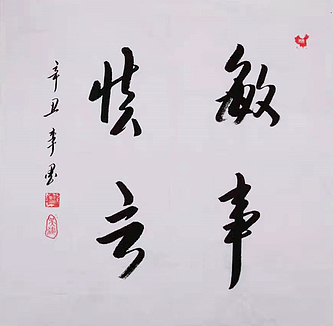 敏事
慎言
辛丑年墨